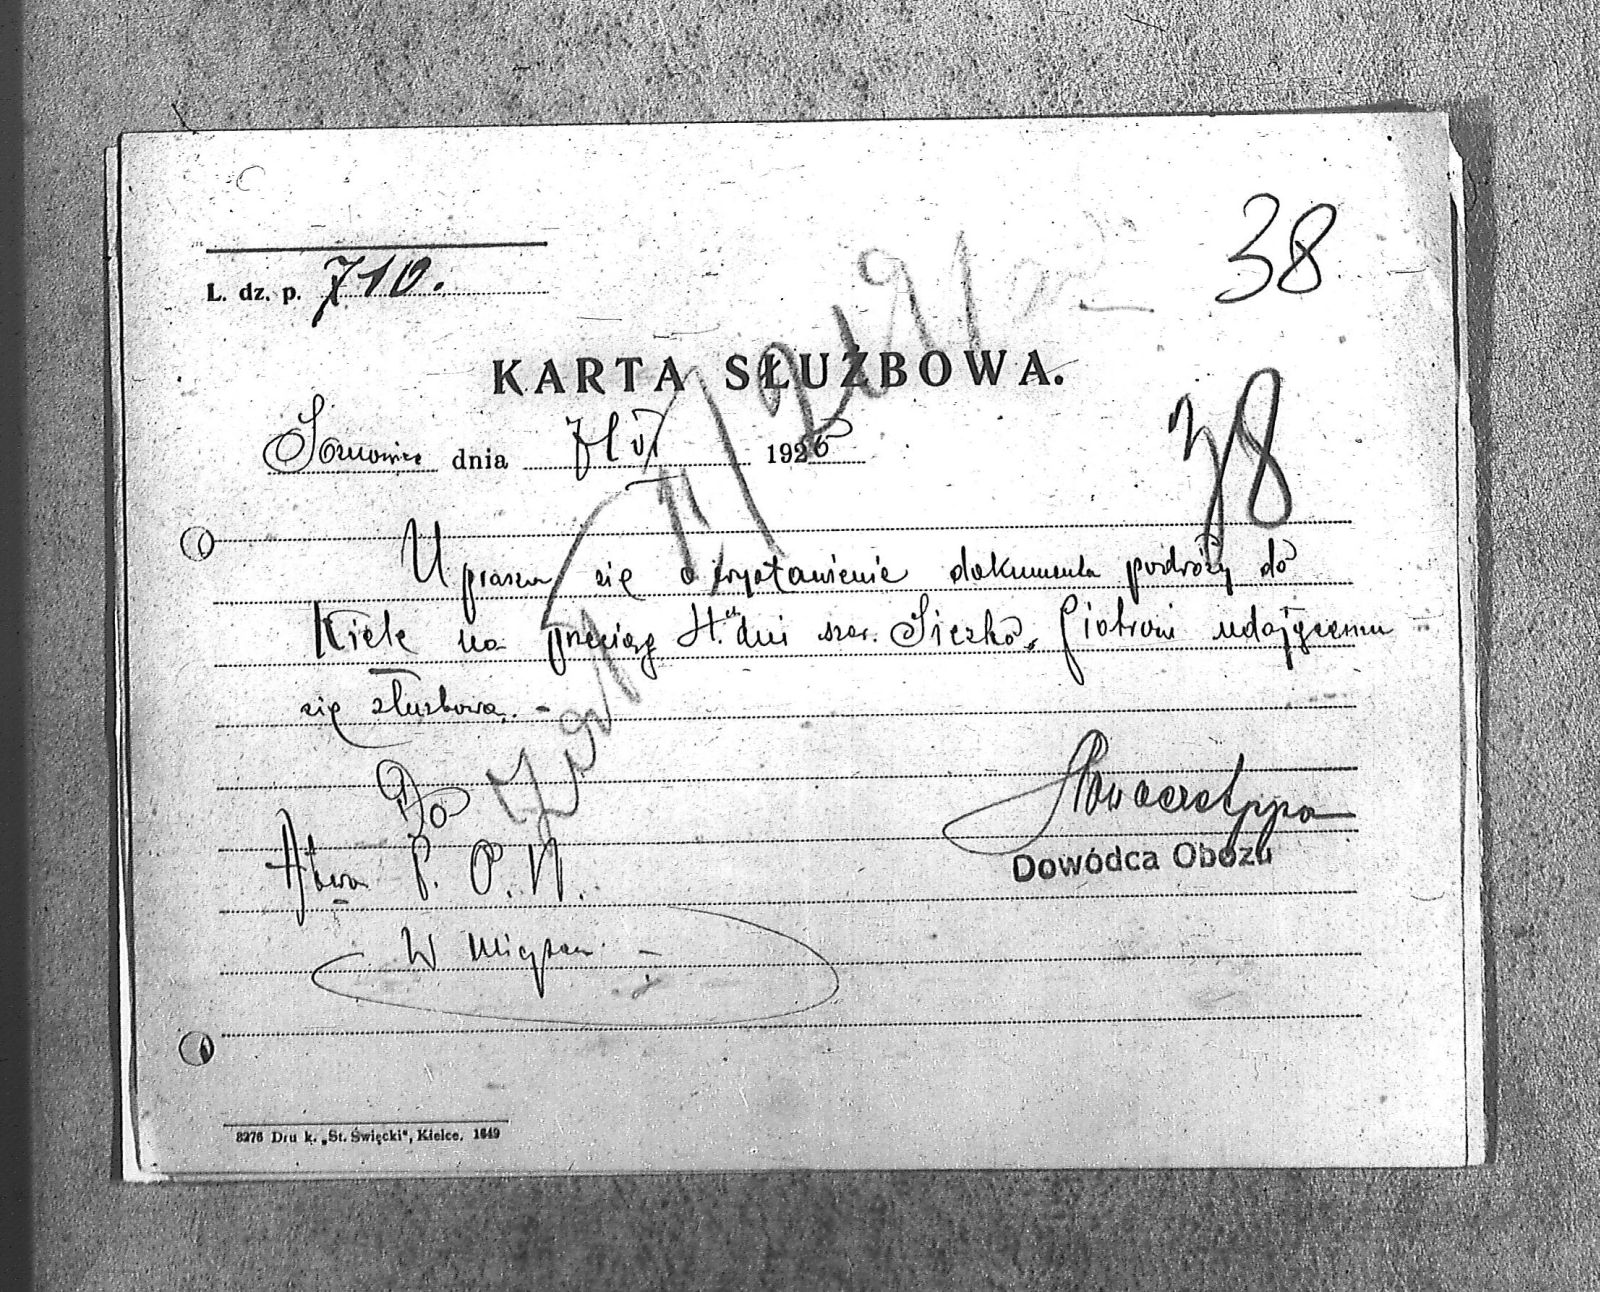 38
L. dz. p. 710.
KARTA SŁUŻBOWA.
dnia 7/VI 1926
38
Uprasza się o wystawienie dokumentu podróży do
Kielc na przeciąg 4. dni szer. Sieczko Piotrowi udającemu
się służbowo. -
Do
P. O. W.
W miejscu -
Dowódca Obozu
8276 Druk. „St. Święcki", Kielce. 1649